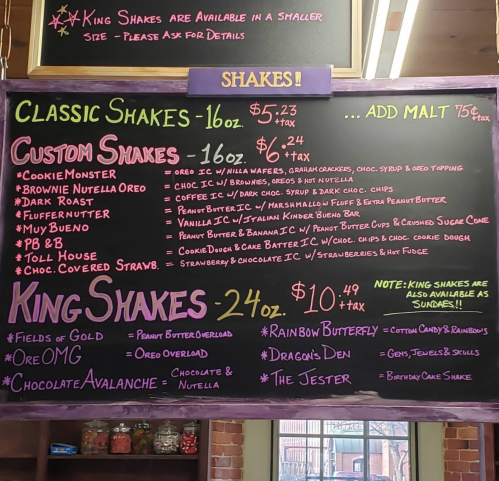 King Shakes are Available in a smaller
size - Please Ask for Details
SHAKES!!
Classic Shakes - 16oz. $5.23 +tax ... Add Malt 75¢ +tax
Custom Shakes - 16oz. $6.24 +tax
*Cookie Monster = Oreo IC w/Nilla Wafers, Graham Crackers, Choc. Syrup & Oreo Topping
*Brownie Nutella Oreo = Choc IC w/Brownies, Oreos & Hot Nutella
*Dark Roast = Coffee IC w/Dark Choc. Syrup & Dark Choc. Chips
*Fluffernutter = Peanut Butter IC w/Marshmallow Fluff & Extra Peanut Butter
*Muy Bueno = Vanilla IC w/Italian Kinder Bueno Bar
*PB & B = Peanut Butter & Banana IC w/Peanut Butter Cups & Crushed Sugar Cone
*Toll House = Cookie Dough & Cake Batter IC w/Choc. Chips & Choc. Cookie Dough
*Choc. Covered Strawb. = Strawberry & Chocolate IC w/Strawberries & Hot Fudge
King Shakes - 24oz. $10.49 +tax
Note: King Shakes are
also available as
Sundaes!!
*Fields of Gold = Peanut Butter Overload
*Ore OMG = Oreo Overload
*Chocolate Avalanche = Chocolate & Nutella
*Rainbow Butterfly = Cotton Candy & Rainbows
*Dragon's Den = Gems, Jewels & Skulls
*The Jester = Birthday Cake Shake